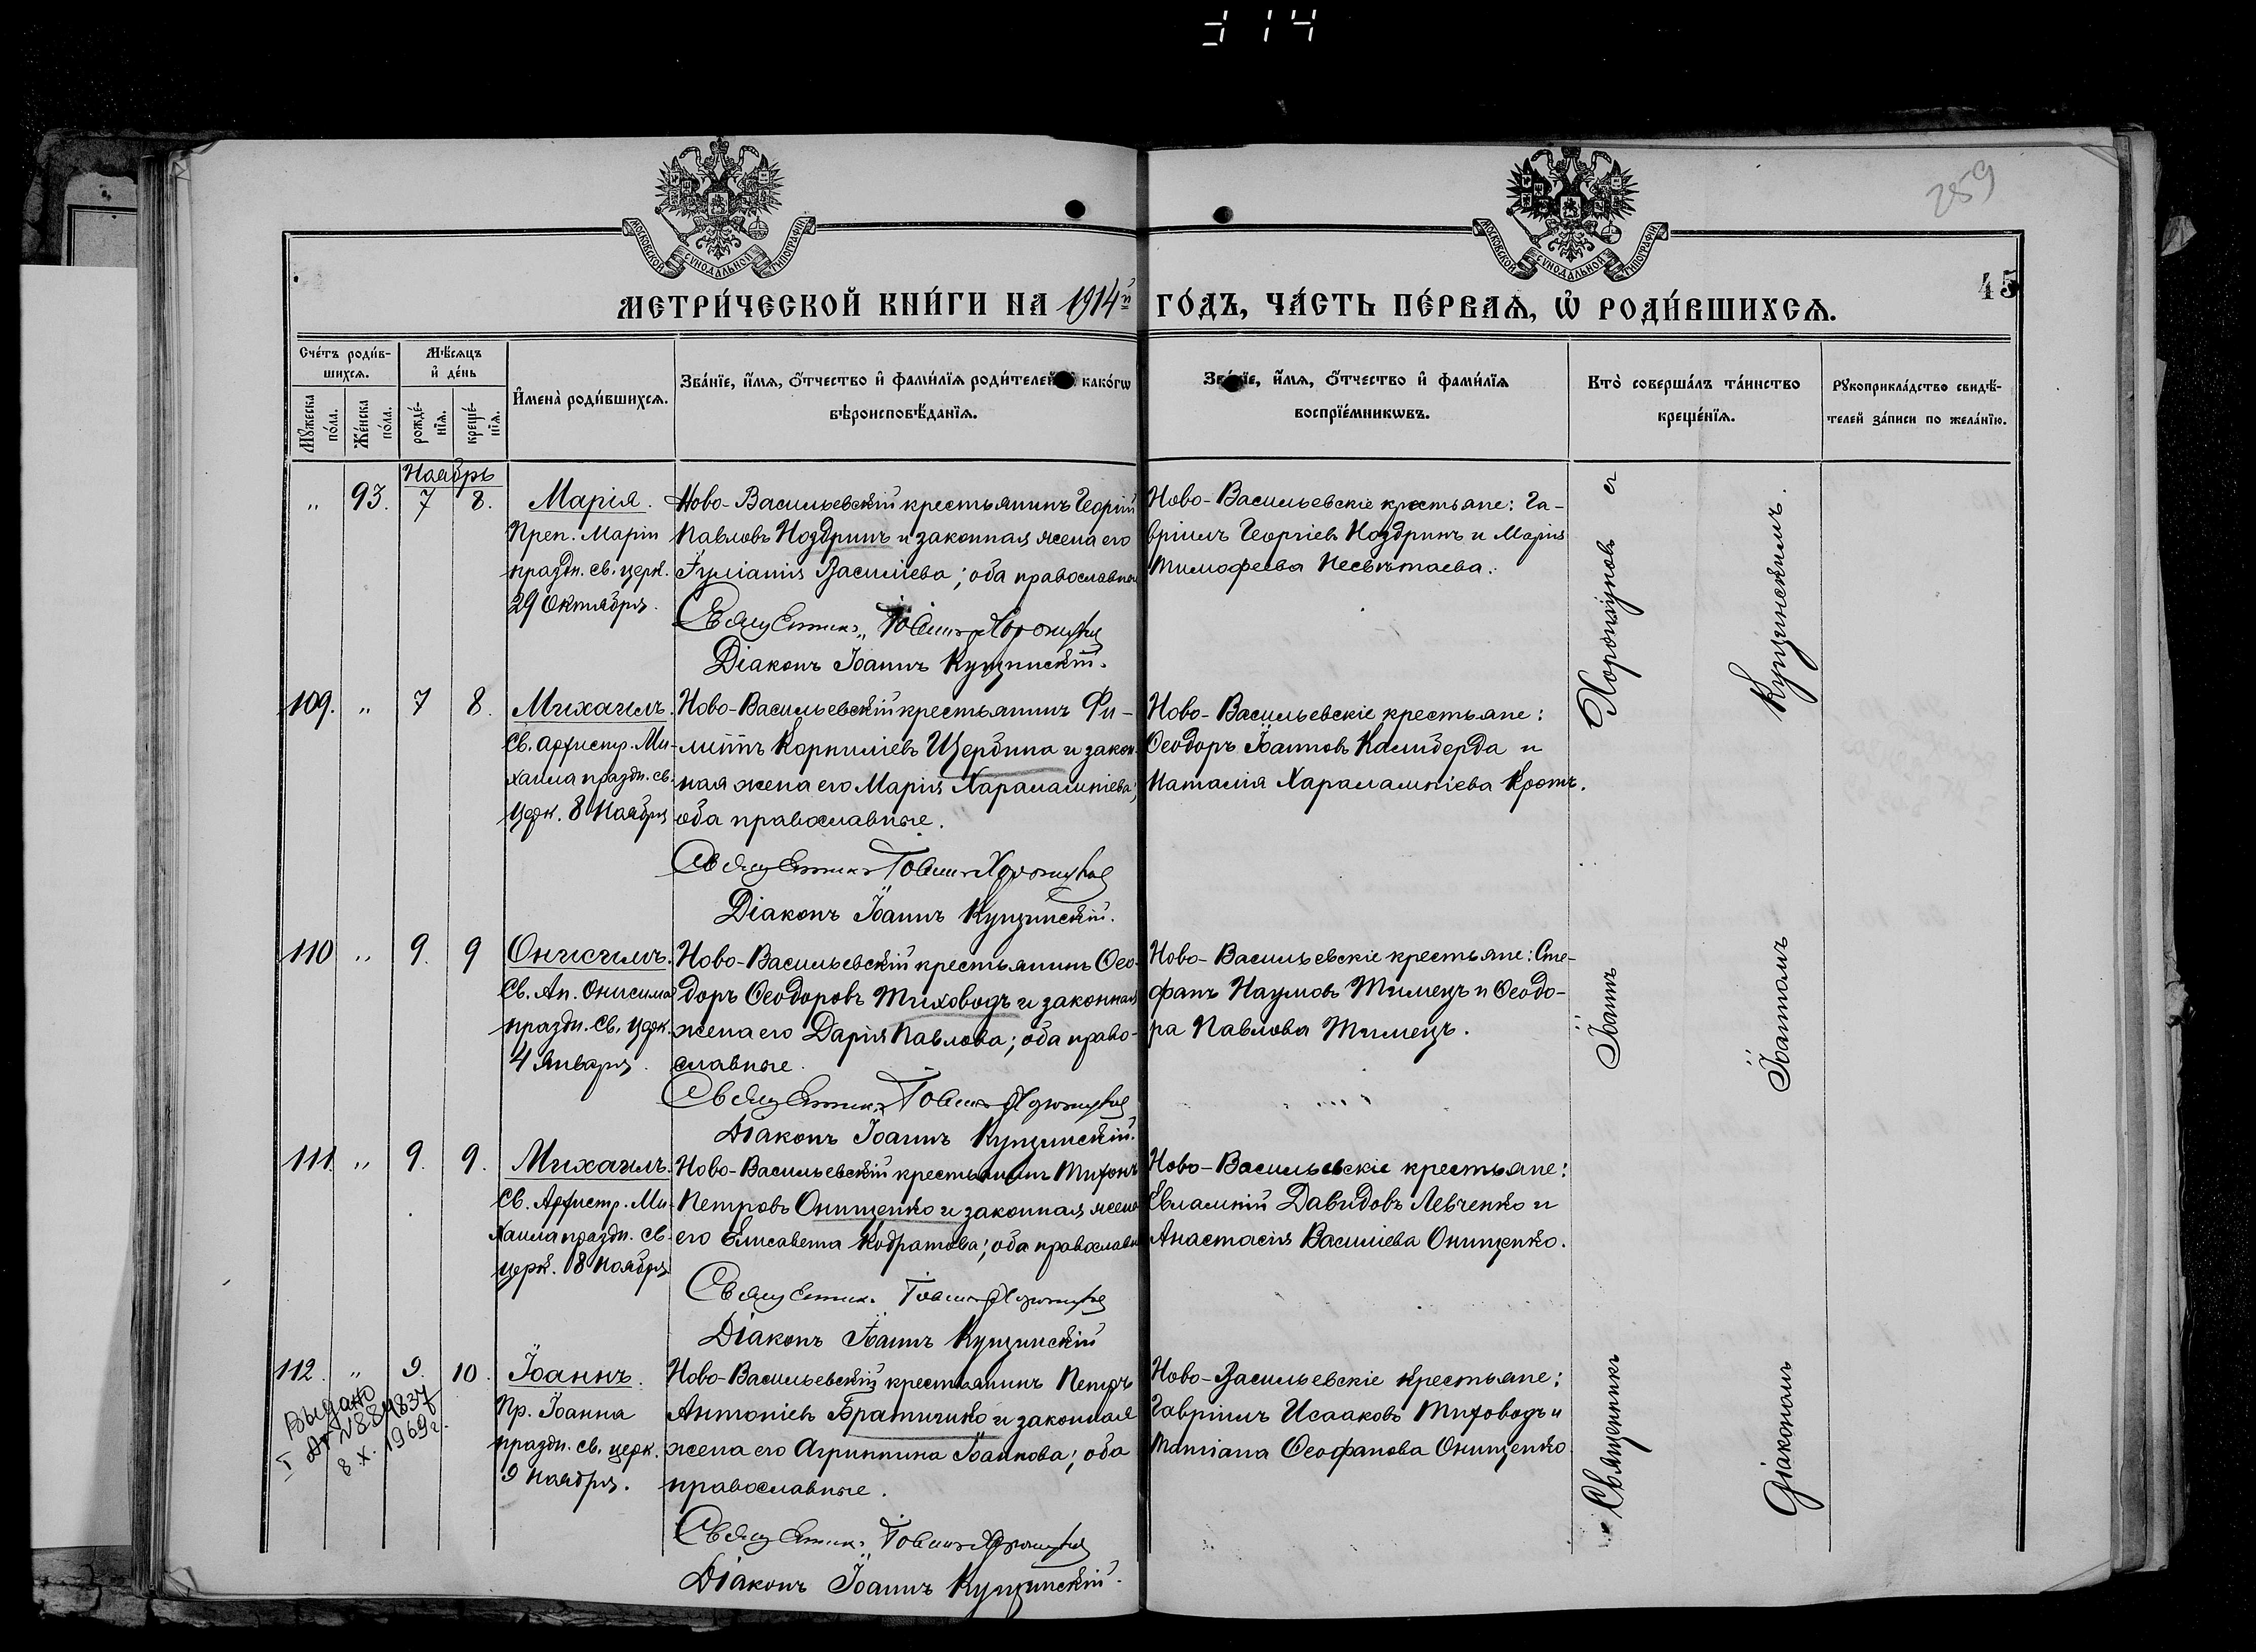 314
259
45
МОСКОВСКОЙ СѴНОДАЛЬНОЙ ТИПОГРАФІИ
МОСКОВСКОЙ СѴНОДАЛЬНОЙ ТИПОГРАФІИ
МЕТРИ́ЧЕСКОЙ КНИ́ГИ НА 1914й ГО́ДЪ, ЧА́СТЬ ПЕ́РВАѦ, Ѡ҆ РОДИ́ВШИХСѦ.
Сче́тъ роди́в-
шихсѧ.
Мꙋ́жеска по́ла.
Же́нска по́ла.
Мѣ́сѧцъ
и҆ де́нь
рожде́-
нїѧ.
креще́-
нїѧ.
И҆мена̀ роди́вшихсѧ.
Зва́нїе, и҆́мѧ, ѻ҆́тчество и҆ фами́лїѧ роди́телей како́гѡ
вѣроисповѣ́данїѧ.
Зва́нїе, и҆́мѧ, ѻ҆́тчество и҆ фами́лїѧ
воспрїе́мникѡвъ.
Кто̀ соверша́лъ та́инство
креще́нїѧ.
Рꙋкоприкла́дство свидѣ́-
телей за́писи по жела́нїю.
Ноябрь
„ 93. 7 8.
Марія.
Преп. Маріи
праздн. св. церк.
29 Октября.
Ново-Васильевскій крестьянинъ Георгій
Павловъ Ноздринъ и законная жена его
Іуліанія Василіева; оба православные
Священникъ Іоаннъ Хоронжуков
Діаконъ Іоаннъ Кунцинскій.
Ново-Васильевскіе крестьяне: Га-
вріилъ Георгіевъ Ноздринъ и Марія
Тимофеева Несвѣтаева.
109. „ 7 8.
Михаилъ.
Св. Архистр. Ми-
хаила праздн. св.
церк. 8 Ноября
Ново-Васильевскій крестьянинъ Фи-
липпъ Корниліевъ Щербина и закон-
ная жена его Марія Харалампіева;
оба православные.
Священникъ Іоаннъ
Діаконъ Іоаннъ Кунцинскій.
Ново-Васильевскіе крестьяне:
Ѳеодоръ Іоанновъ Калиберда и
Наталія Харалампіева Кротъ.
110 „ 9. 9
Онисимъ.
Св. Ап. Онисима
праздн. св. церк.
4 Января.
Ново-Васильевскій крестьянинъ Ѳео-
доръ Ѳеодоровъ Тиховодъ и законная
жена его Дарія Павлова; оба право-
славные.
Священникъ Іоаннъ
Діаконъ Іоаннъ Кунцинскій.
Ново-Васильевскіе крестьяне: Сте-
фанъ Наумовъ Тимецъ и Ѳеодо-
ра Павлова Тимецъ.
111 „ 9. 9.
Михаилъ.
Св. Архистр. Ми-
хаила праздн. св.
церк. 8 Ноября
Ново-Васильевскій крестьянинъ Тихонъ
Петровъ Онищенко и законная жена
его Елисавета Кодратова; оба православн
Священникъ Іоаннъ
Діаконъ Іоаннъ Кунцинскій
Ново-Васильевскіе крестьяне:
Евлампій Давидовъ Левченко и
Анастасія Василіева Онищенко.
112. „ 9. 10.
Іоаннъ.
Пр. Іоанна
праздн. св. церк.
9 Ноября.
Выдано
8.X.1969г.
Ново-Васильевскій крестьянинъ Петръ
Антоніевъ Братичико и законная
жена его Агриппина Іоаннова; оба
православные.
Священникъ Іоаннъ
Діаконъ Іоаннъ Кунцинскій.
Ново-Васильевскіе крестьяне:
Гавріилъ Исааковъ Тиховодъ и
Татіана Ѳеофанова Онищенко.
Священникъ Іоаннъ Хоронжуковъ съ
Діакономъ Іоанномъ Кунцинскимъ.